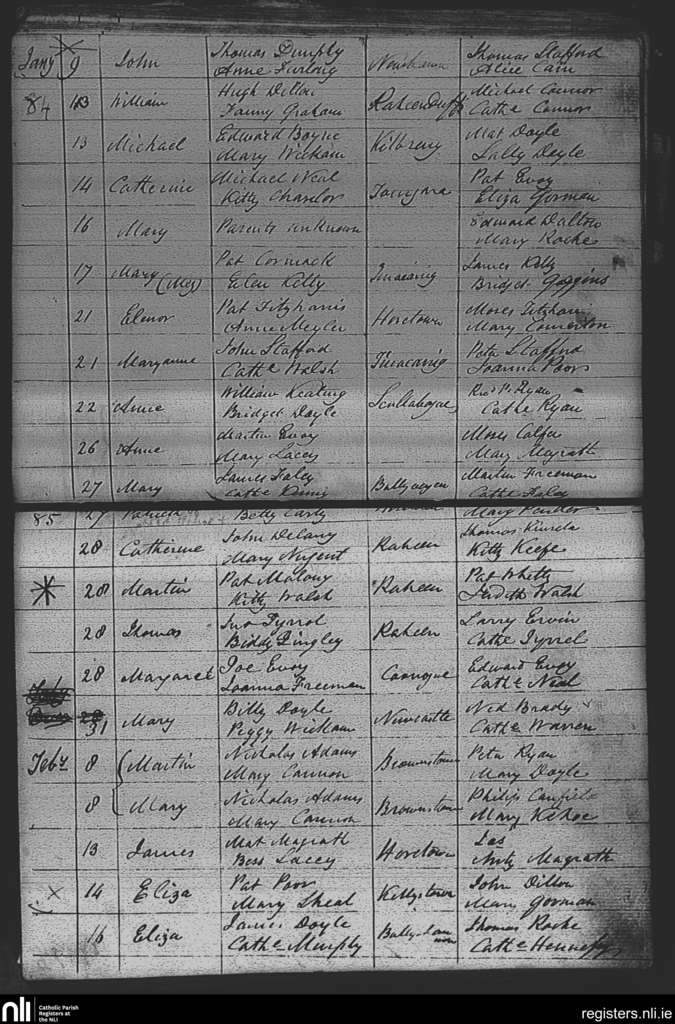 Jany 9 John Thomas Dunphy Thomas Stafford
Anne Furlong Alice Cain
84 13 William Hugh Dillon Raheenduff Michael Connor
Fanny Graham Cathe Connor
13 Michael Edward Boyne Kilbreny Mat Doyle
Mary Wickham Sally Doyle
14 Catherine Michael Neal Pat Evoy
Kitty Chandor Eliza Gorman
16 Mary Parents unknown Edward Dalton
Mary Roche
17 Mary Pat Cormack James Kelly
(Mey) Elen Kelly Bridget Goggins
21 Elenor Pat Fitzharris Horetown Moses Fitzharris
Anne Meyler Mary Comerton
21 Maryanne John Stafford Peter Stafford
Cathe Walsh Joanna Poor
22 Anne William Keating Scullabogue Revd P. Ryan
Bridget Doyle Cathe Ryan
26 Anne Martin Evoy Moses Colfer
Mary Lacey Mary Magrath
27 Mary James Faley Martin Freeman
Cathe Cathe Faley
85 27 Patrick Betty Carty Mary Pender
28 Catherine John Delany Raheen Thomas Kinsela
Mary Nugent Kitty Keefe
28 Martin Pat Malony Raheen Pat Whetty
Kitty Walsh Judith Walsh
28 Thomas Jno Tyrrol Raheen Larry Ervin
Biddy Dingley Cathe Tyrrel
28 Margaret Joe Evoy Coonogue Edward Evoy
Joanna Freeman Cathe Neal
31 Mary Billy Doyle Newcastle Ned Brady
Peggy Wickham Cathe Warren
Feby 8 Martin Nicholas Adams Brownstown Peter Ryan
Mary Cannon Mary Doyle
8 Mary Nicholas Adams Brownstown Philip Canfield
Mary Cannon Mary Kehoe
13 James Mat Magrath Horetown Jas
Bess Lacey Anty Magrath
14 Eliza Pat Poor Kellystown John Dillon
Mary Sheal Mary Gorman
16 Eliza James Doyle Thomas Roche
Cathe Murphy Cathe Hennessy
nli Catholic Parish
Registers at
the NLI
registers.nli.ie